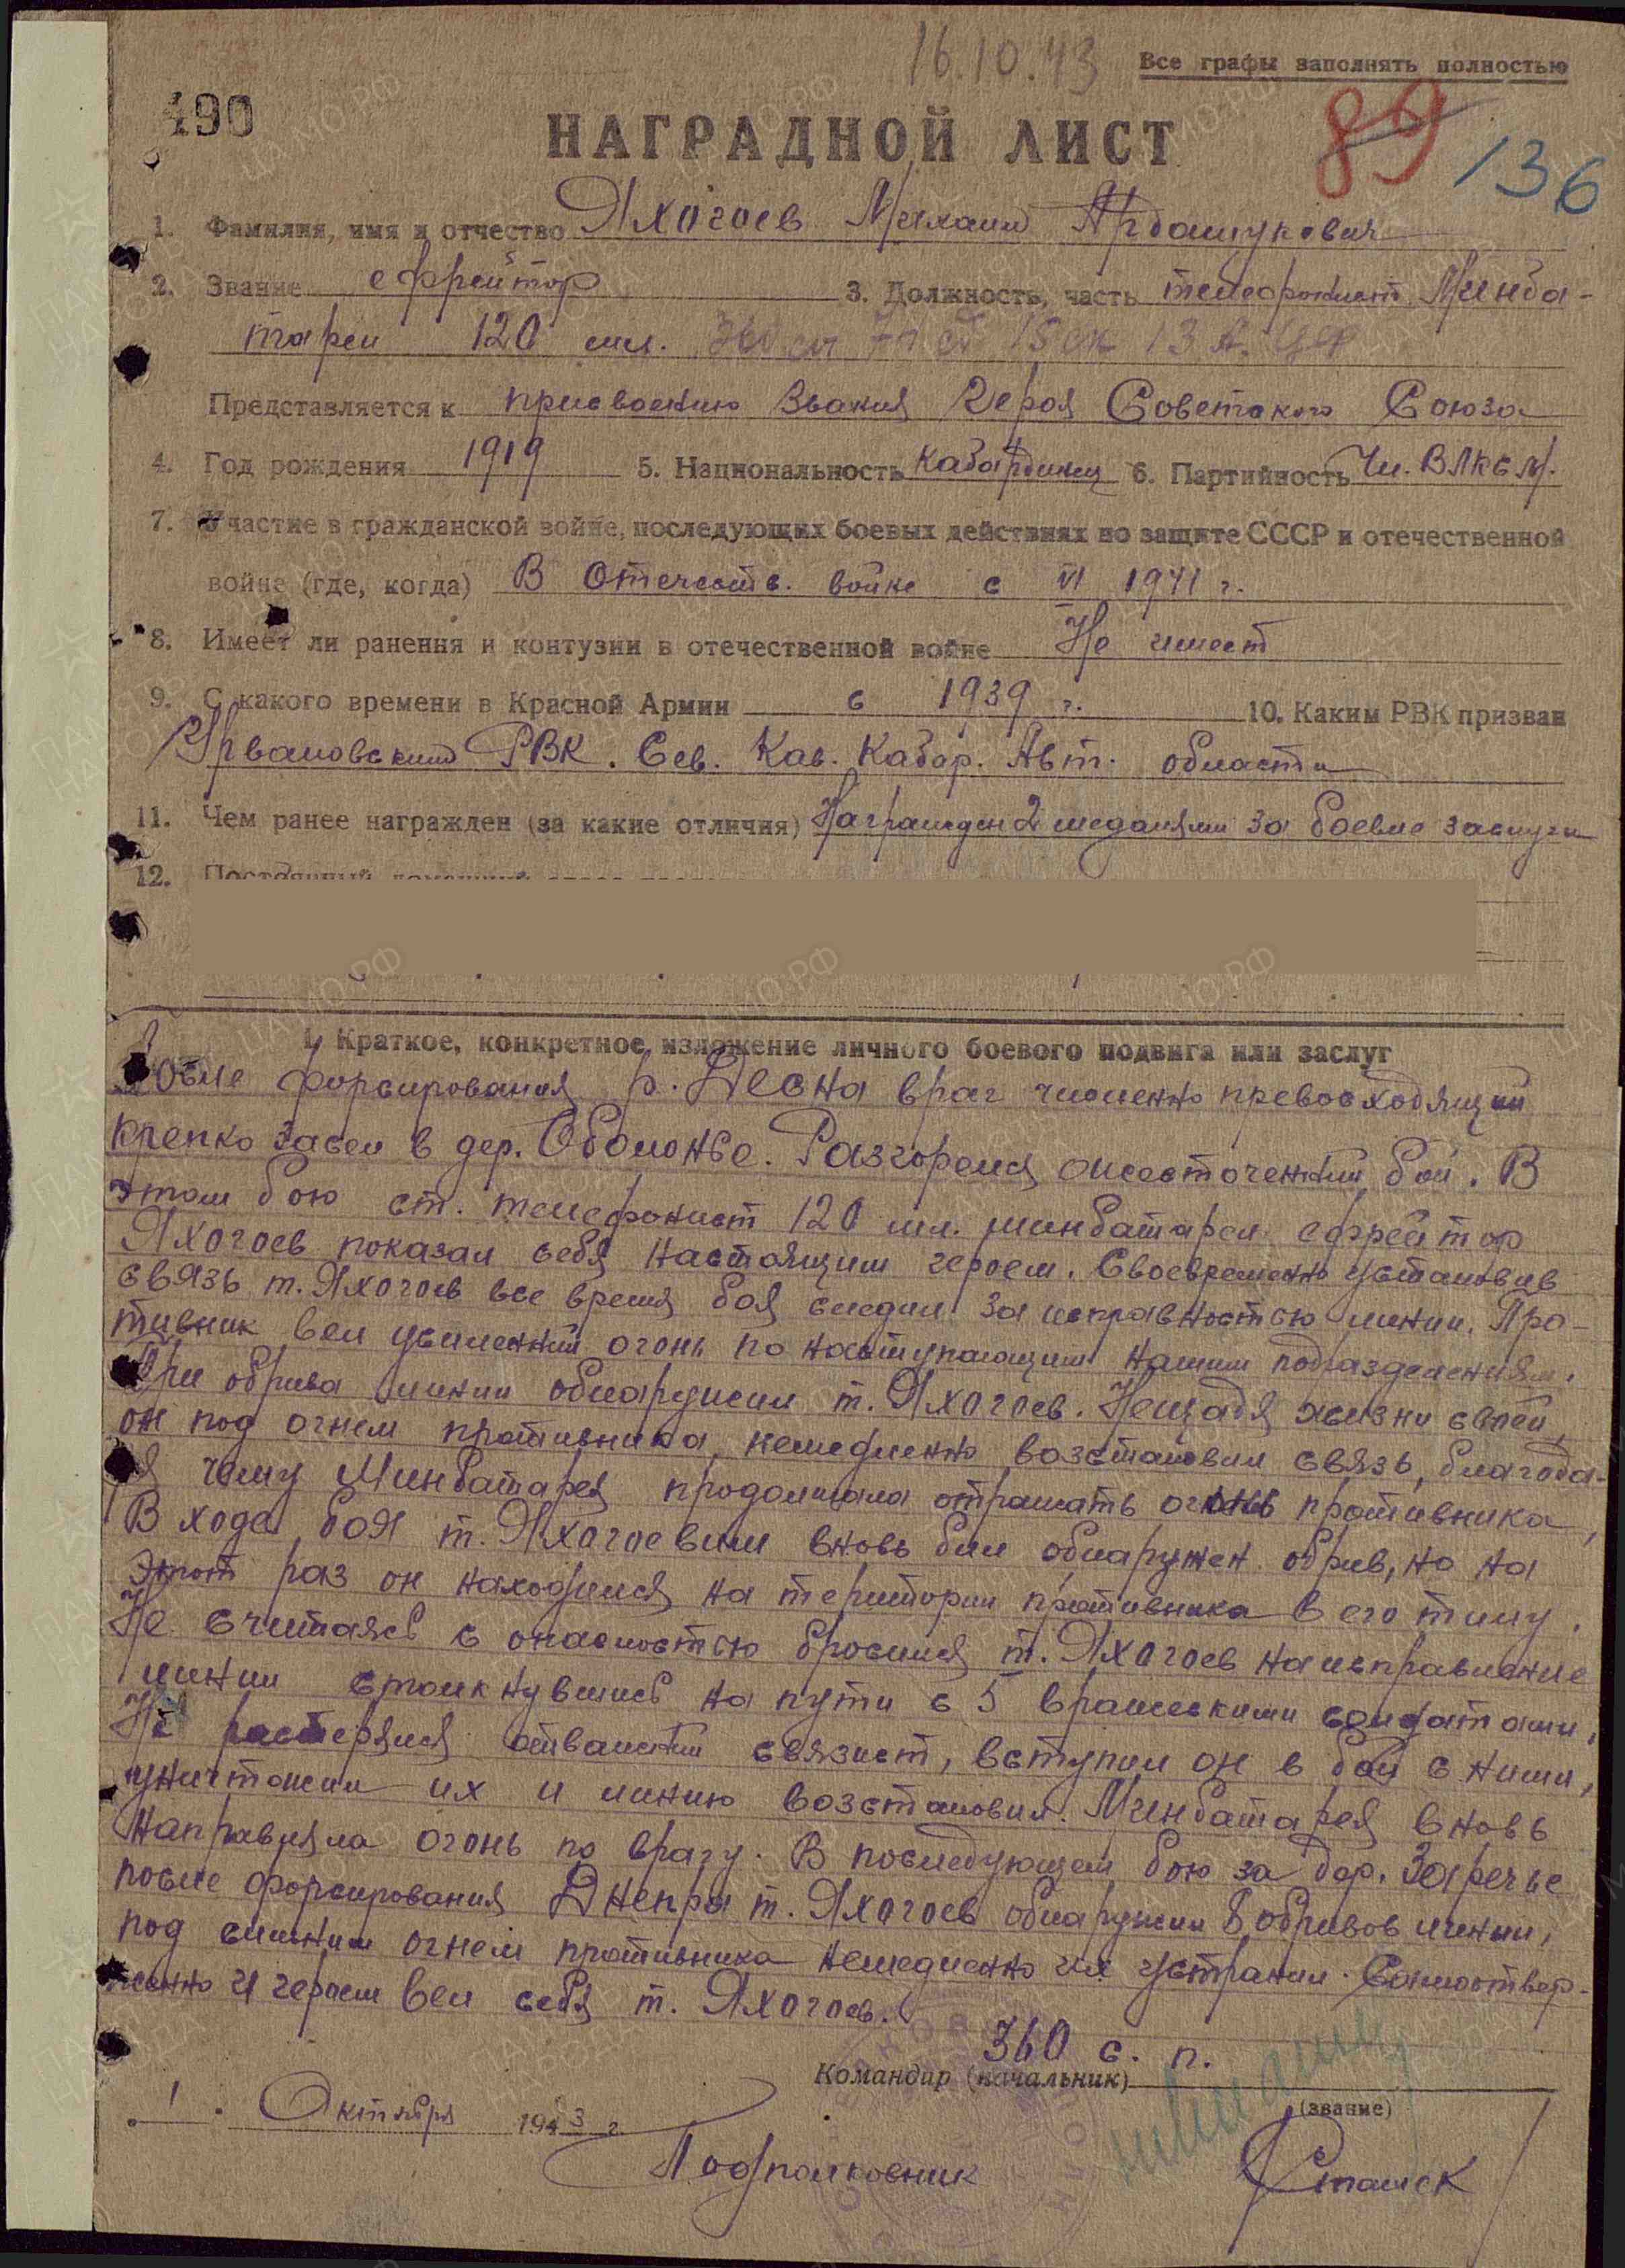 16.10.43
Все графы заполнять полностью
490
НАГРАДНОЙ ЛИСТ
89 136
1. Фамилия, имя и отчество Яхогоев Михаил Ардашукович
2. Звание ефрейтор 3. Должность, часть телефонист Минба-
тареи 120 мм. 360 сп 74 сд 15 ск 13 А. ЦФ
Представляется к присвоению Звания Героя Советского Союза
4. Год рождения 1919 5. Национальность кабардинец 6. Партийность Чл. ВЛКСМ.
7. Участие в гражданской войне, последующих боевых действиях по защите СССР и отечественной
войне (где, когда) В Отечеств. войне с VI 1941 г.
8. Имеет ли ранения и контузии в отечественной войне Не имеет
9. С какого времени в Красной Армии с 1939 г. 10. Каким РВК призван
Урвановским РВК. Сев. Кав. Кабар. Авт. области
11. Чем ранее награжден (за какие отличия) Награжден 2 медалями за боевые заслуги
12.
I. Краткое, конкретное изложение личного боевого подвига или заслуг
После форсирования р. Десна враг численно превосходящий
крепко засел в дер. Оболонье. Разгорелся ожесточенный бой. В
этом бою ст. телефонист 120 мм. минбатареи ефрейтор
Яхогоев показал себя настоящим героем. Своевременно установив
связь т. Яхогоев все время боя следил за исправностью линии. Про-
тивник вел усиленный огонь по наступающим нашим подразделениям.
Три обрыва линии обнаружил т. Яхогоев. Нещадя жизни своей,
он под огнем противника, немедленно возстановил связь, благода-
ря чему Минбатарея продолжала отражать огонь противника,
В ходе боя т. Яхогоевым вновь был обнаружен обрыв, но на
этот раз он находился на територии противника в его тылу.
Не считаясь с опасностью бросился т. Яхогоев на исправление
линии столкнувшись на пути с 5 вражескими солдатами,
Не растерялся отважный связист, вступил он в бой с ними,
уничтожил их и линию возстановил. Минбатарея вновь
направляла огонь по врагу. В последующем бою за дер. Заречье
после форсирования Днепра т. Яхогоев обнаружил 8 обрывов линии,
под сильным огнем противника немедленно их устранил. Самоотвер-
женно и героем вел себя т. Яхогоев.
360 с. п.
Командир (начальник)
(звание)
"1" Октября 1943 г.
Подполковник Сташек